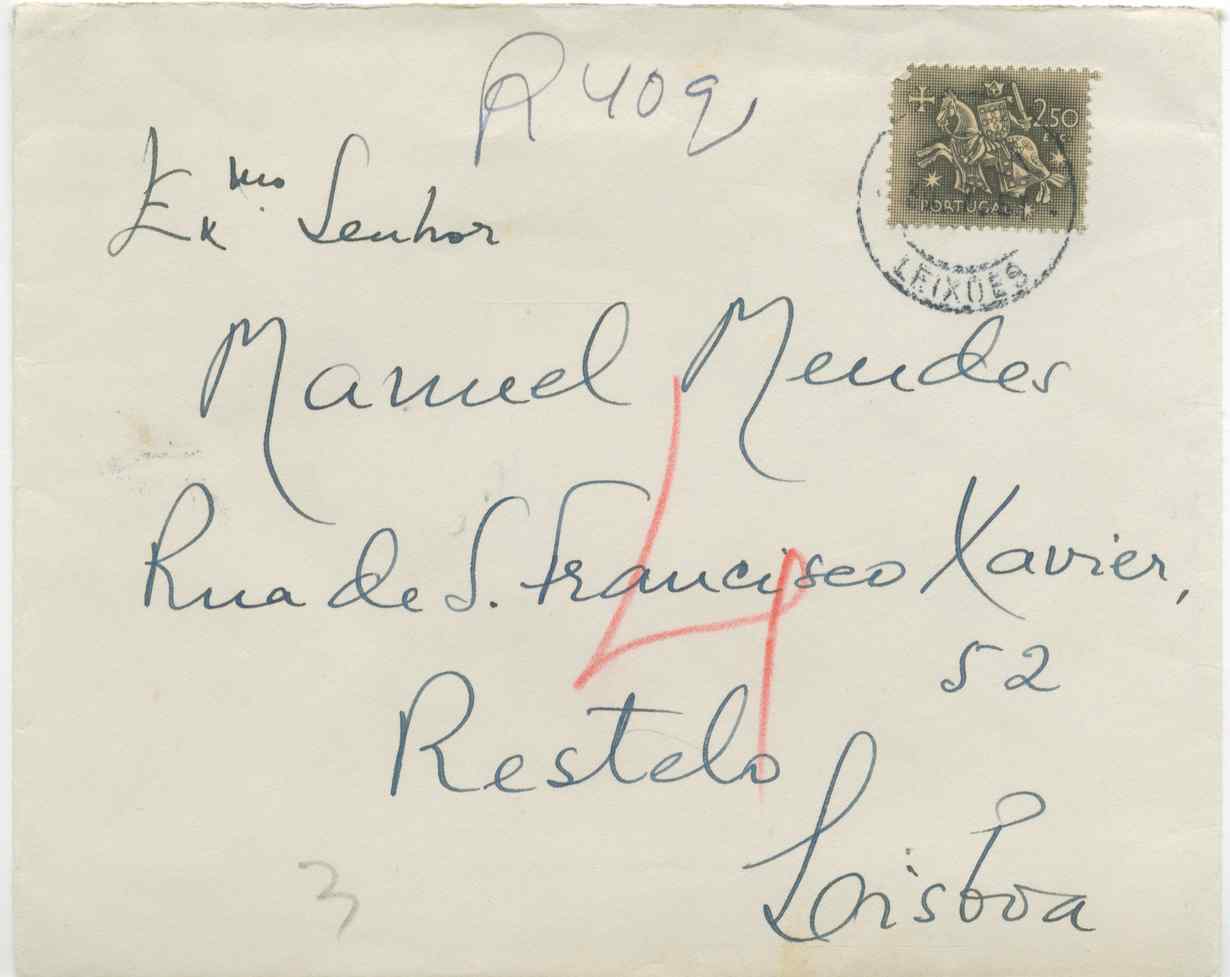 R 409
2$50
ESC.
PORTUGAL
LEIXÕES
Exmo. Senhor
Manuel Mendes
Rua de S. Francisco Xavier,
52
Restelo
Lisboa
4
3